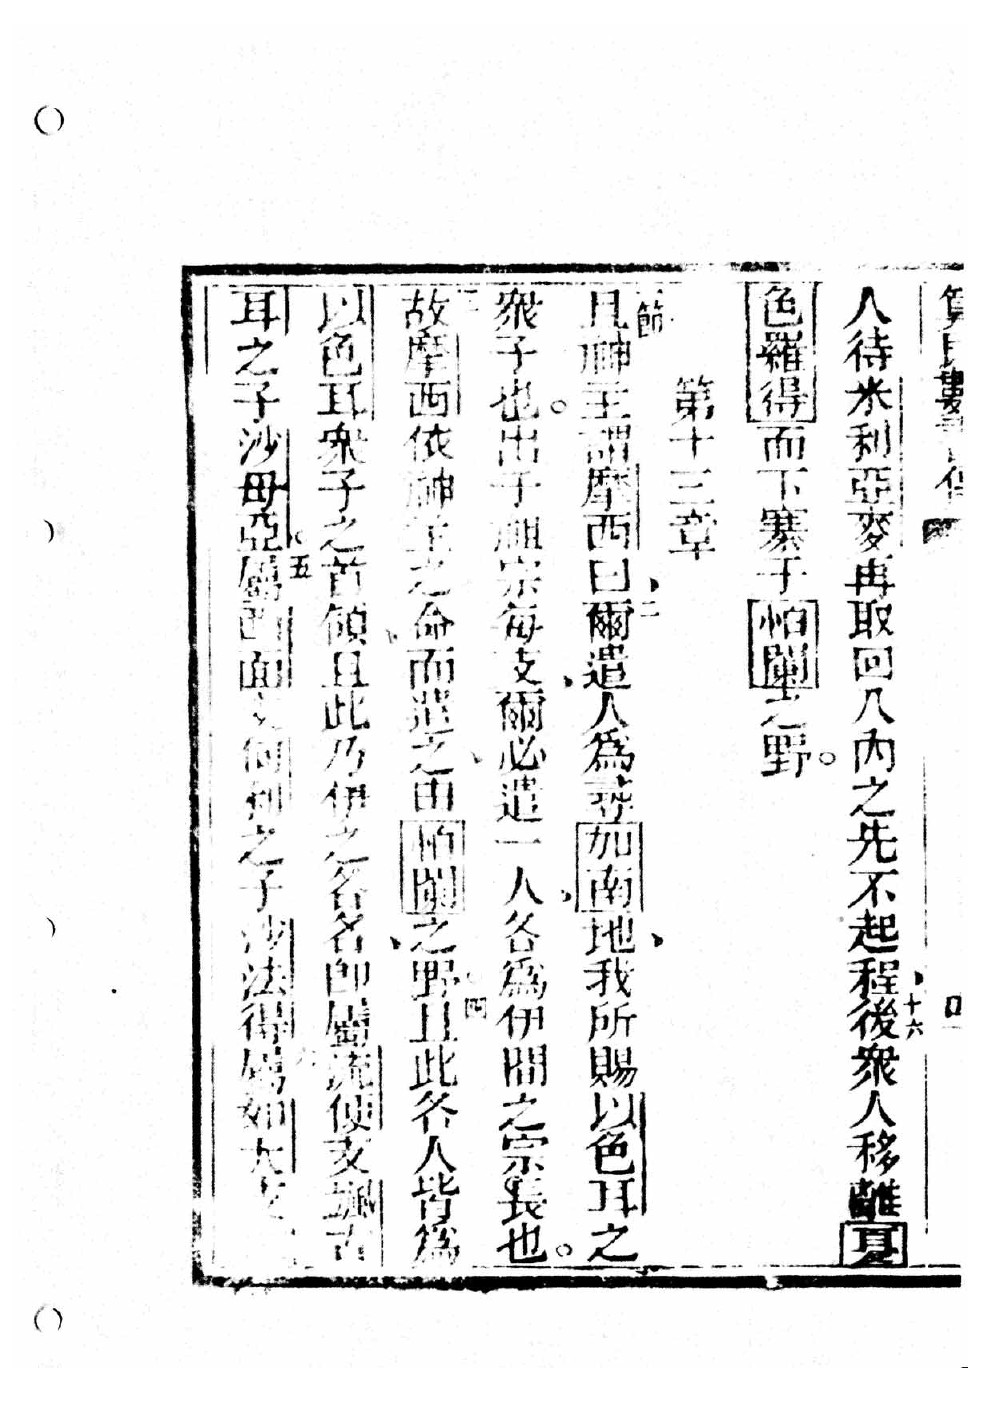 人待米利亞麥再取回入內之先不起程十六後衆人移離夏
色羅得而下寨于怕闌之野
第十三章
一節且神主謂摩西曰二爾遣人爲尋加南地我所賜以色耳之
衆子也出于祖宗每支爾必遣一人各爲伊間之宗長也
三故摩西依神主之命而遣之由怕闌之野四且此各人皆爲
以色耳衆子之首領且此乃伊之各名卽屬流便支
耳之子沙母亞五屬西面支之子沙法得六屬如大支